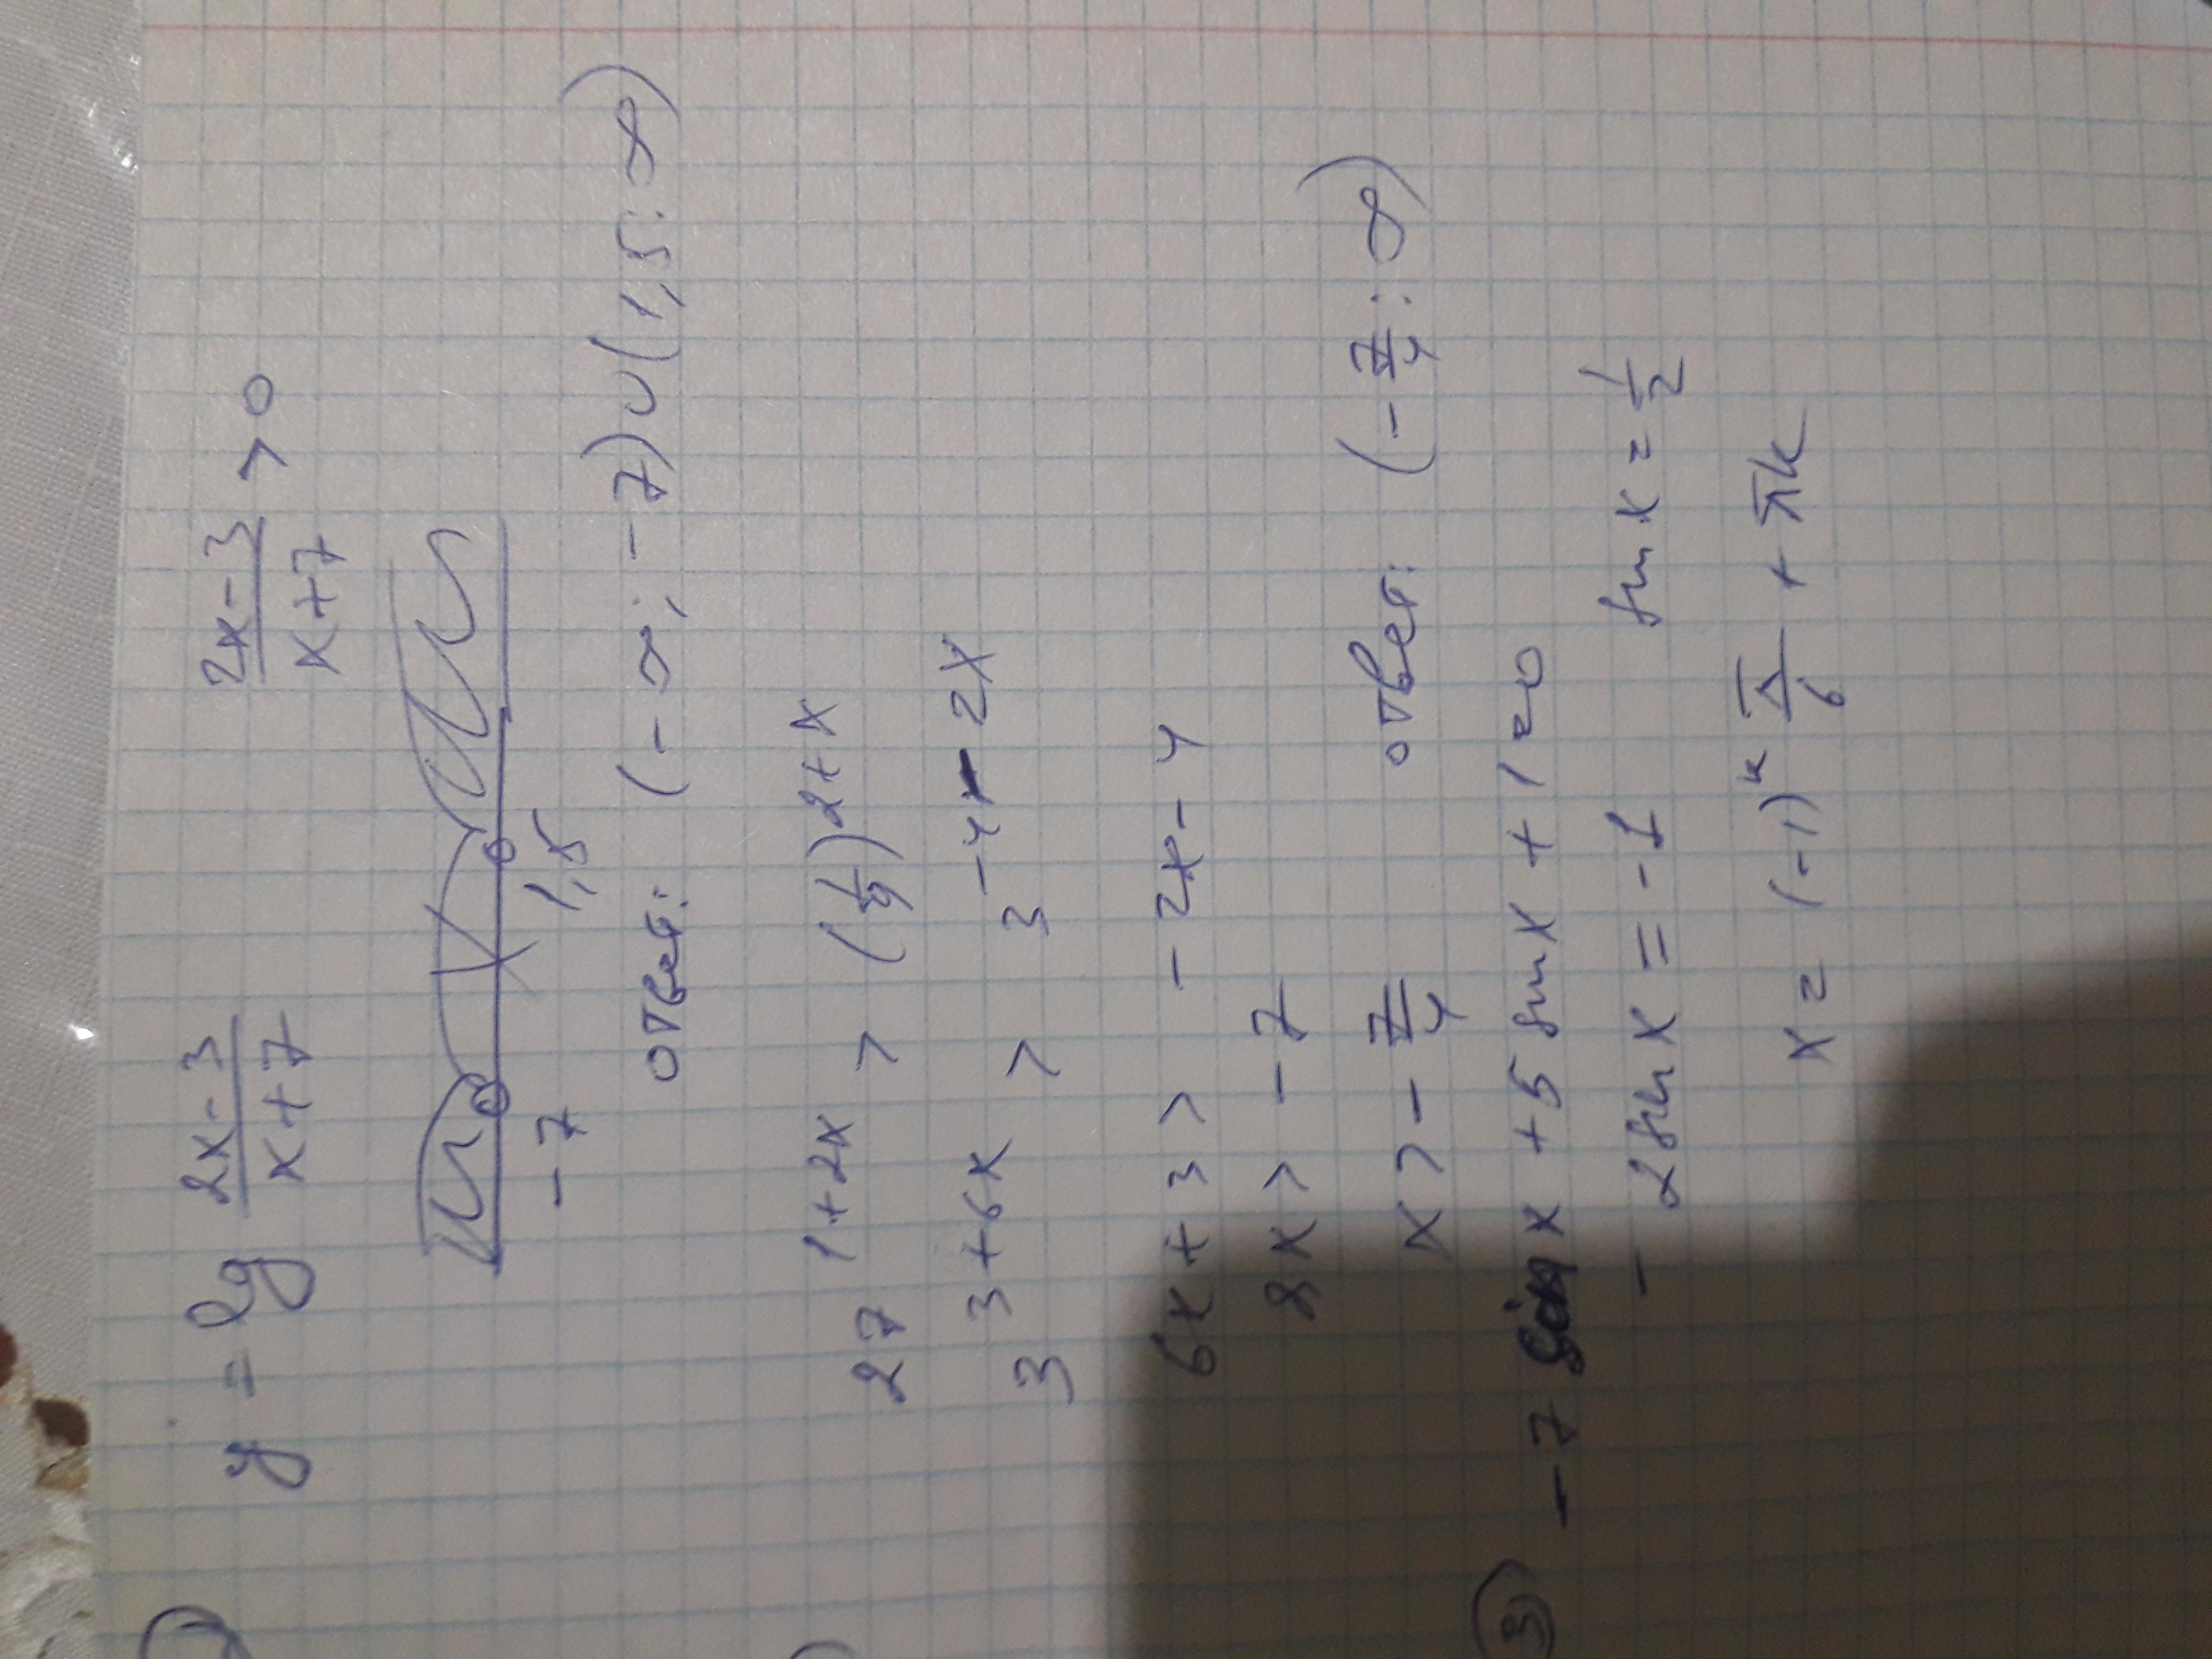 y = lg (2x-3)/(x+7) (2x-3)/(x+7) > 0
-7 1,5
ответ: (-∞; -7)∪(1,5: ∞)
27^(1+2x) > (1/9)^(2+x)
3^(3+6x) > 3^(-4-2x)
6x+3 > -2x-4
8x > -7
x > -7/4 ответ: (-7/4: ∞)
③ -7 sin x + 5 sin x + 1 = 0
-2 sin x = -1 sin x = 1/2
x = (-1)^k π/6 + πk